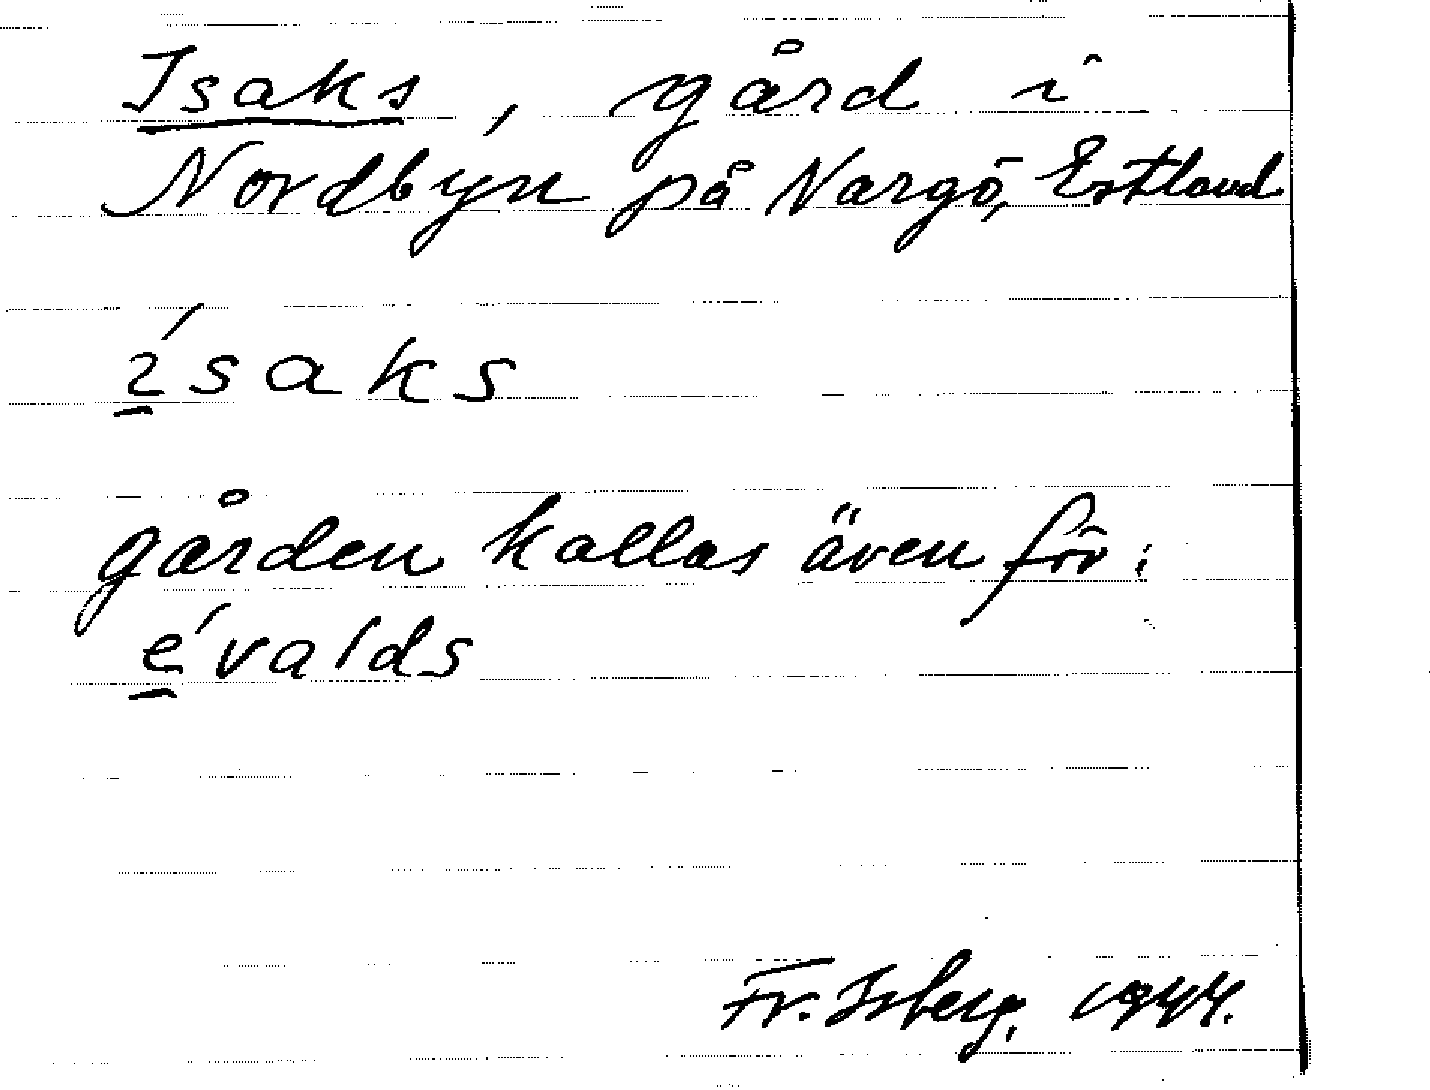 Isaks, gård i
Nordbyn på Nargö, Estland
ísaks
gården kallas även för:
évalds
Fr. Isberg, 1944.